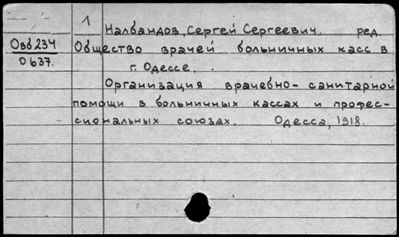 1 Налбандов, Сергей Сергеевич. ред.
Овб 234 Общество врачей больничных касс в
0637. г. Одессе.
Организация врачебно-санитарной
помощи в больничных кассах и профес-
сиональных союзах. Одесса, 1918.